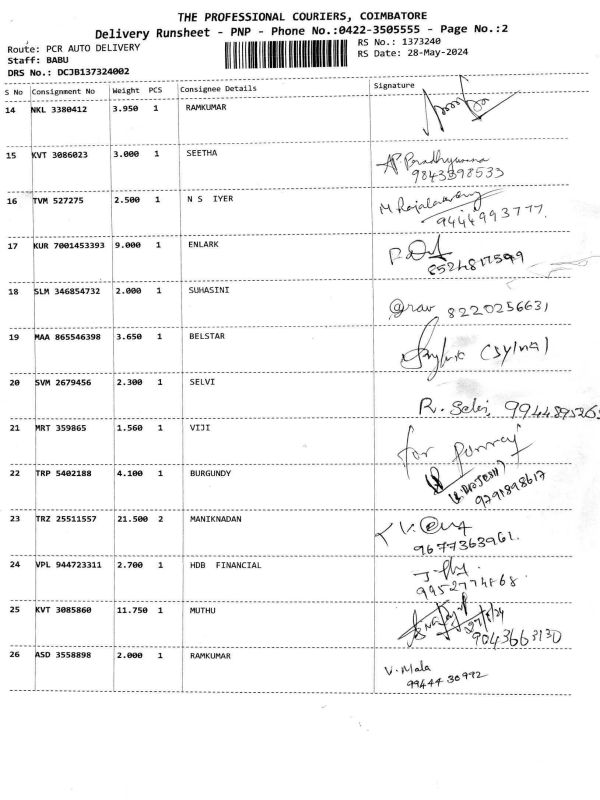 THE PROFESSIONAL COURIERS, COIMBATORE
Delivery Runsheet - PNP - Phone No.:0422-3505555 - Page No.:2
Route: PCR AUTO DELIVERY
RS No.: 1373240
Staff: BABU
RS Date: 28-May-2024
DRS No.: DCJB137324002
S No Consignment No Weight PCS Consignee Details Signature
14 NKL 3380412 3.950 1 RAMKUMAR
15 KVT 3086023 3.000 1 SEETHA AP. Pradhyumna
9843398533
16 TVM 527275 2.500 1 N S IYER M
9444993777.
17 KUR 7001453393 9.000 1 ENLARK
8524817599
18 SLM 346854732 2.000 1 SUHASINI 8220256631
19 MAA 865546398 3.650 1 BELSTAR
20 SVM 2679456 2.300 1 SELVI R. Selvi, 9944895265
21 MRT 359865 1.560 1 VIJI for Ponraj
22 TRP 5402188 4.100 1 BURGUNDY
9791898617
23 TRZ 25511557 21.500 2 MANIKNADAN
9677363961.
24 VPL 944723311 2.700 1 HDB FINANCIAL
25 KVT 3085860 11.750 1 MUTHU
9043663130
26 ASD 3558898 2.000 1 RAMKUMAR V. Mala
99444 30992